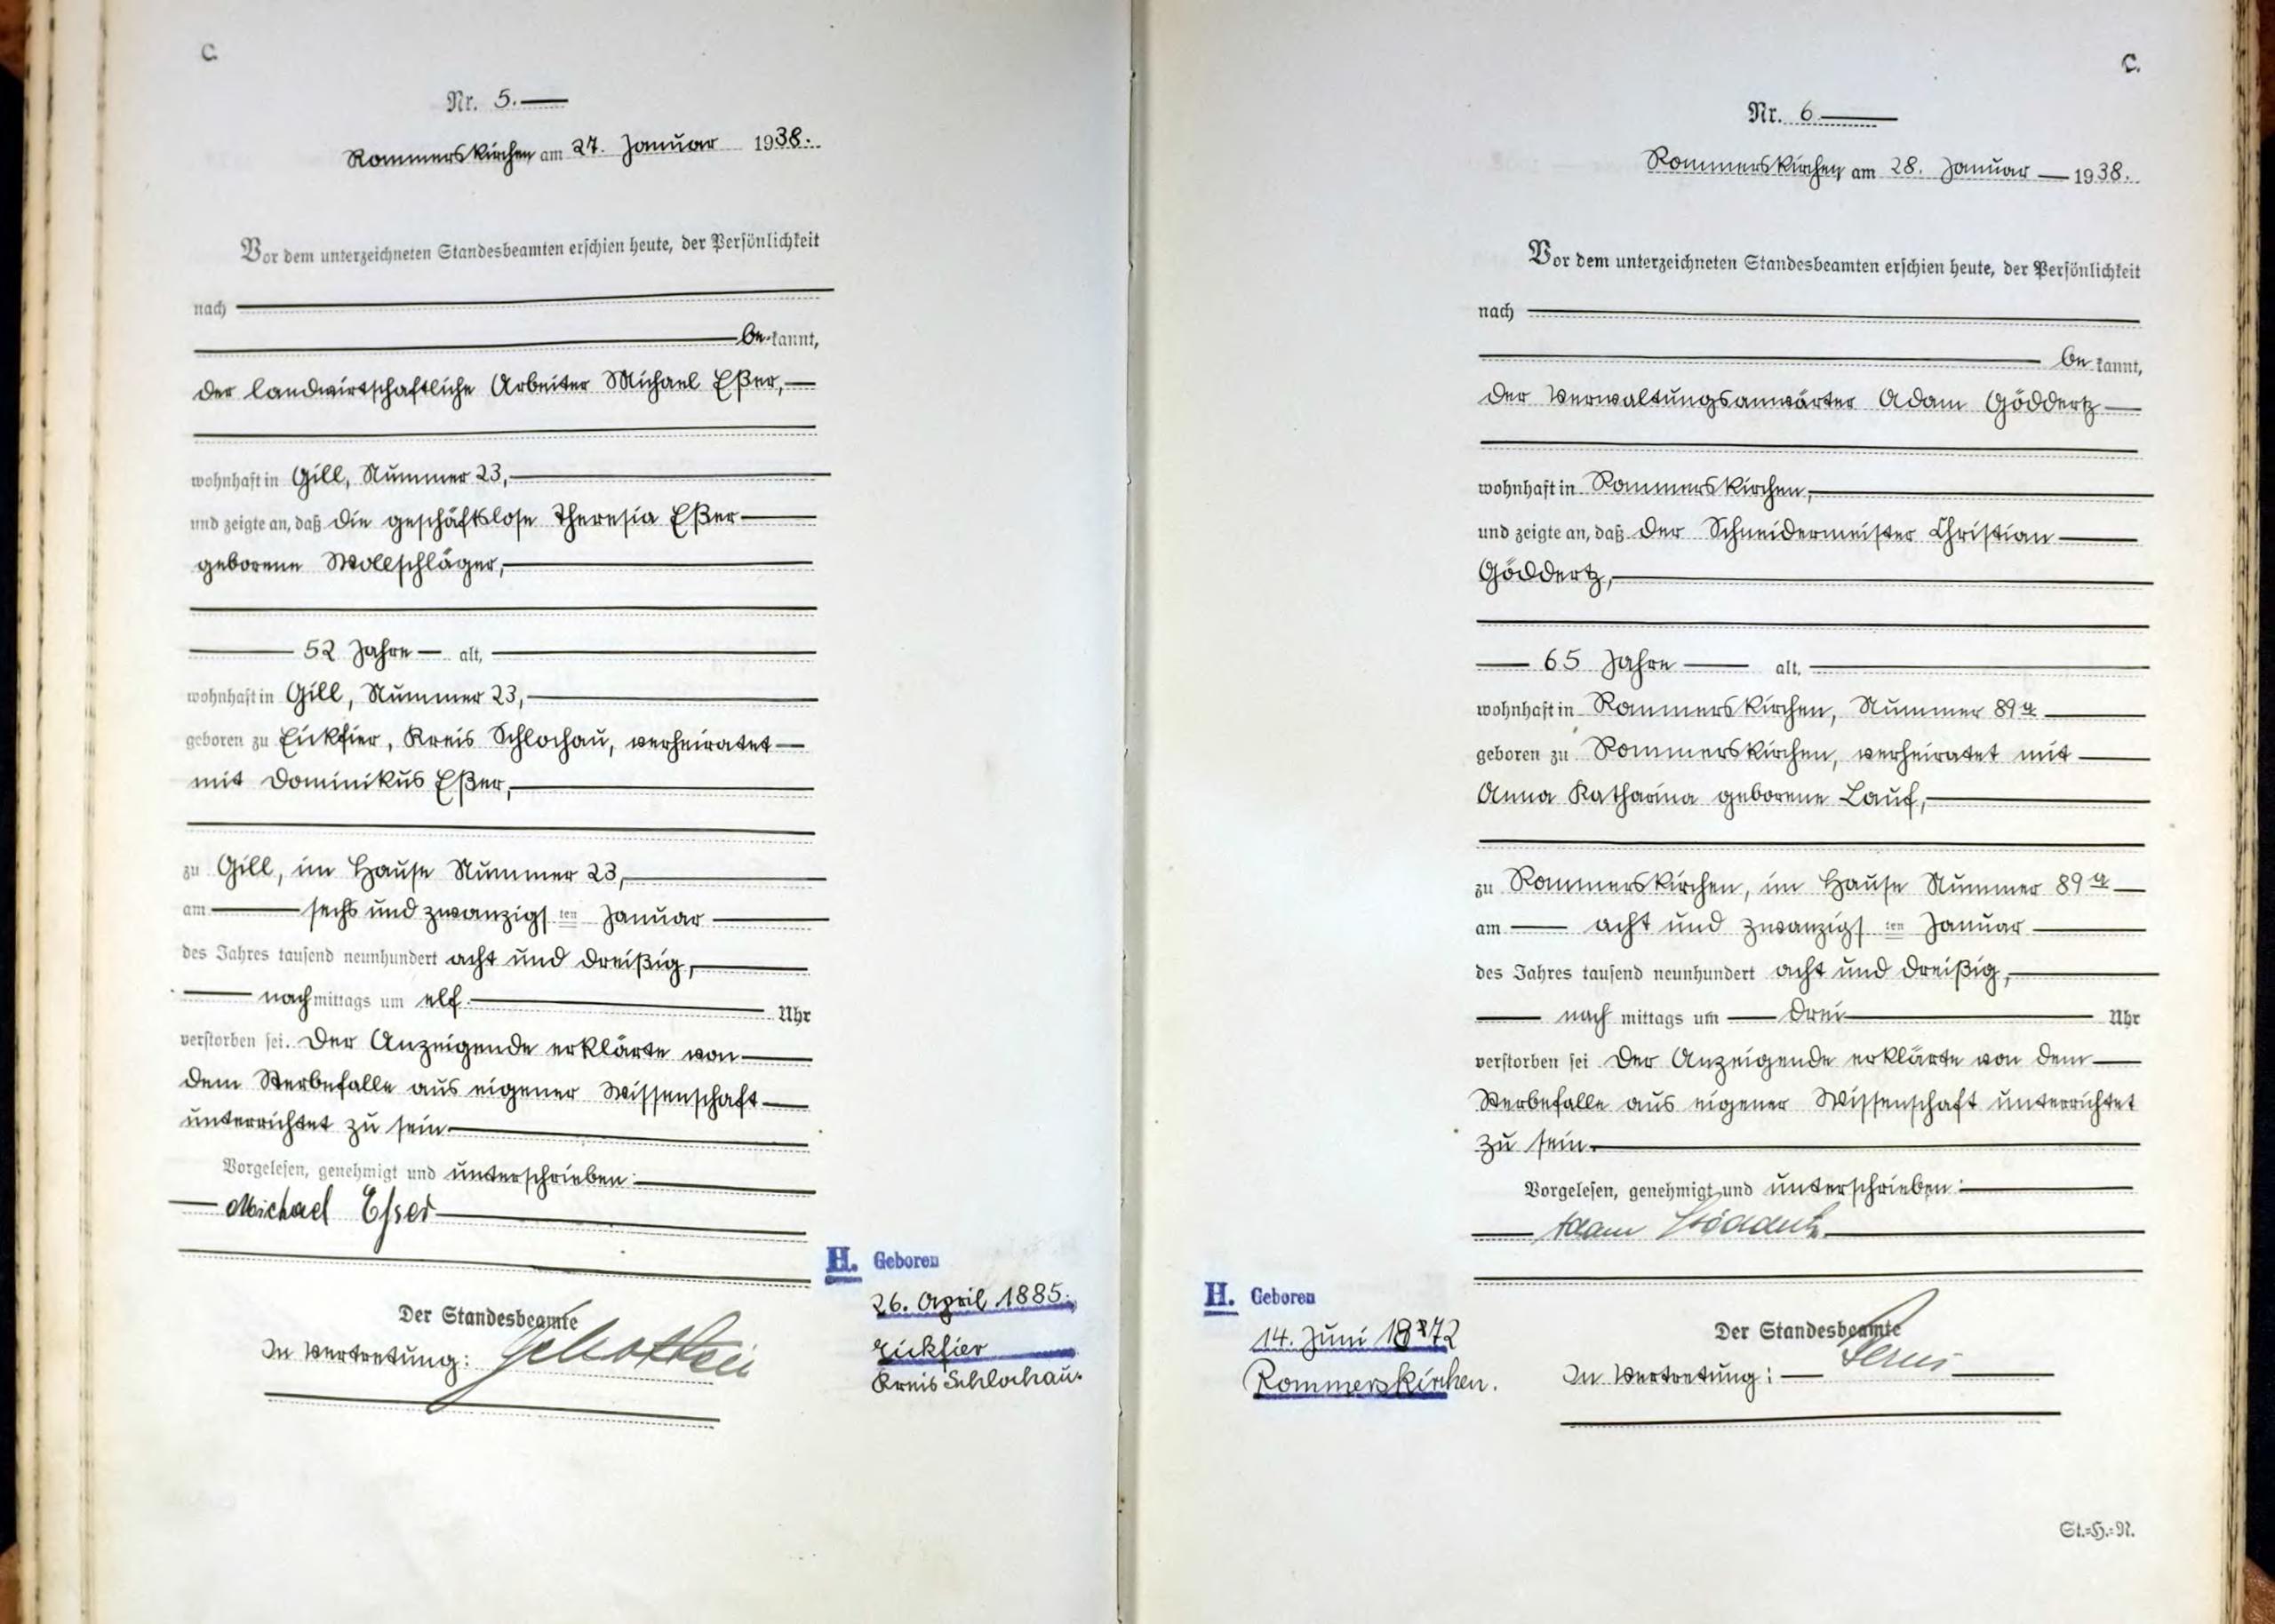 C.
Nr. 5.
Rommerskirchen am 27. Januar 1938.
Vor dem unterzeichneten Standesbeamten erschien heute, der Persönlichkeit
nach
be kannt,
der landwirtschaftliche Arbeiter Michael Eßer,
wohnhaft in Gill, Nummer 23,
und zeigte an, daß die geschäftslose Theresia Eßer
geborene Wollschläger,
52 Jahre alt,
wohnhaft in Gill, Nummer 23,
geboren zu Eickfier, Kreis Schlochau, verheiratet
mit Dominikus Eßer,
zu Gill, im Hause Nummer 23,
am sechs und zwanzigs ten Januar
des Jahres tausend neunhundert acht und dreißig,
nach mittags um elf Uhr
verstorben sei. Der Anzeigende erklärte von
dem Sterbefalle aus eigener Wissenschaft
unterrichtet zu sein.
Vorgelesen, genehmigt und unterschrieben:
Michael Esser
Der Standesbeamte
In Vertretung:
H. Geboren
26. April 1885.
Eickfier
Kreis Schlochau.
C.
Nr. 6
Rommerskirchen am 28. Januar 1938.
Vor dem unterzeichneten Standesbeamten erschien heute, der Persönlichkeit
nach
be kannt,
der Verwaltungsanwärter Adam Göddertz
wohnhaft in Rommerskirchen,
und zeigte an, daß der Schneidermeister Christian
Göddertz,
65 Jahre alt,
wohnhaft in Rommerskirchen, Nummer 89a
geboren zu Rommerskirchen, verheiratet mit
Anna Katharina geborene Lauf,
zu Rommerskirchen, im Hause Nummer 89a
am acht und zwanzigs ten Januar
des Jahres tausend neunhundert acht und dreißig,
nach mittags um drei Uhr
verstorben sei. Der Anzeigende erklärte von dem
Sterbefalle aus eigener Wissenschaft unterrichtet
zu sein.
Vorgelesen, genehmigt und unterschrieben:
Adam Göddertz.
Der Standesbeamte
In Vertretung:
H. Geboren
14. Juni 1872
Rommerskirchen.
St.=H.=N.